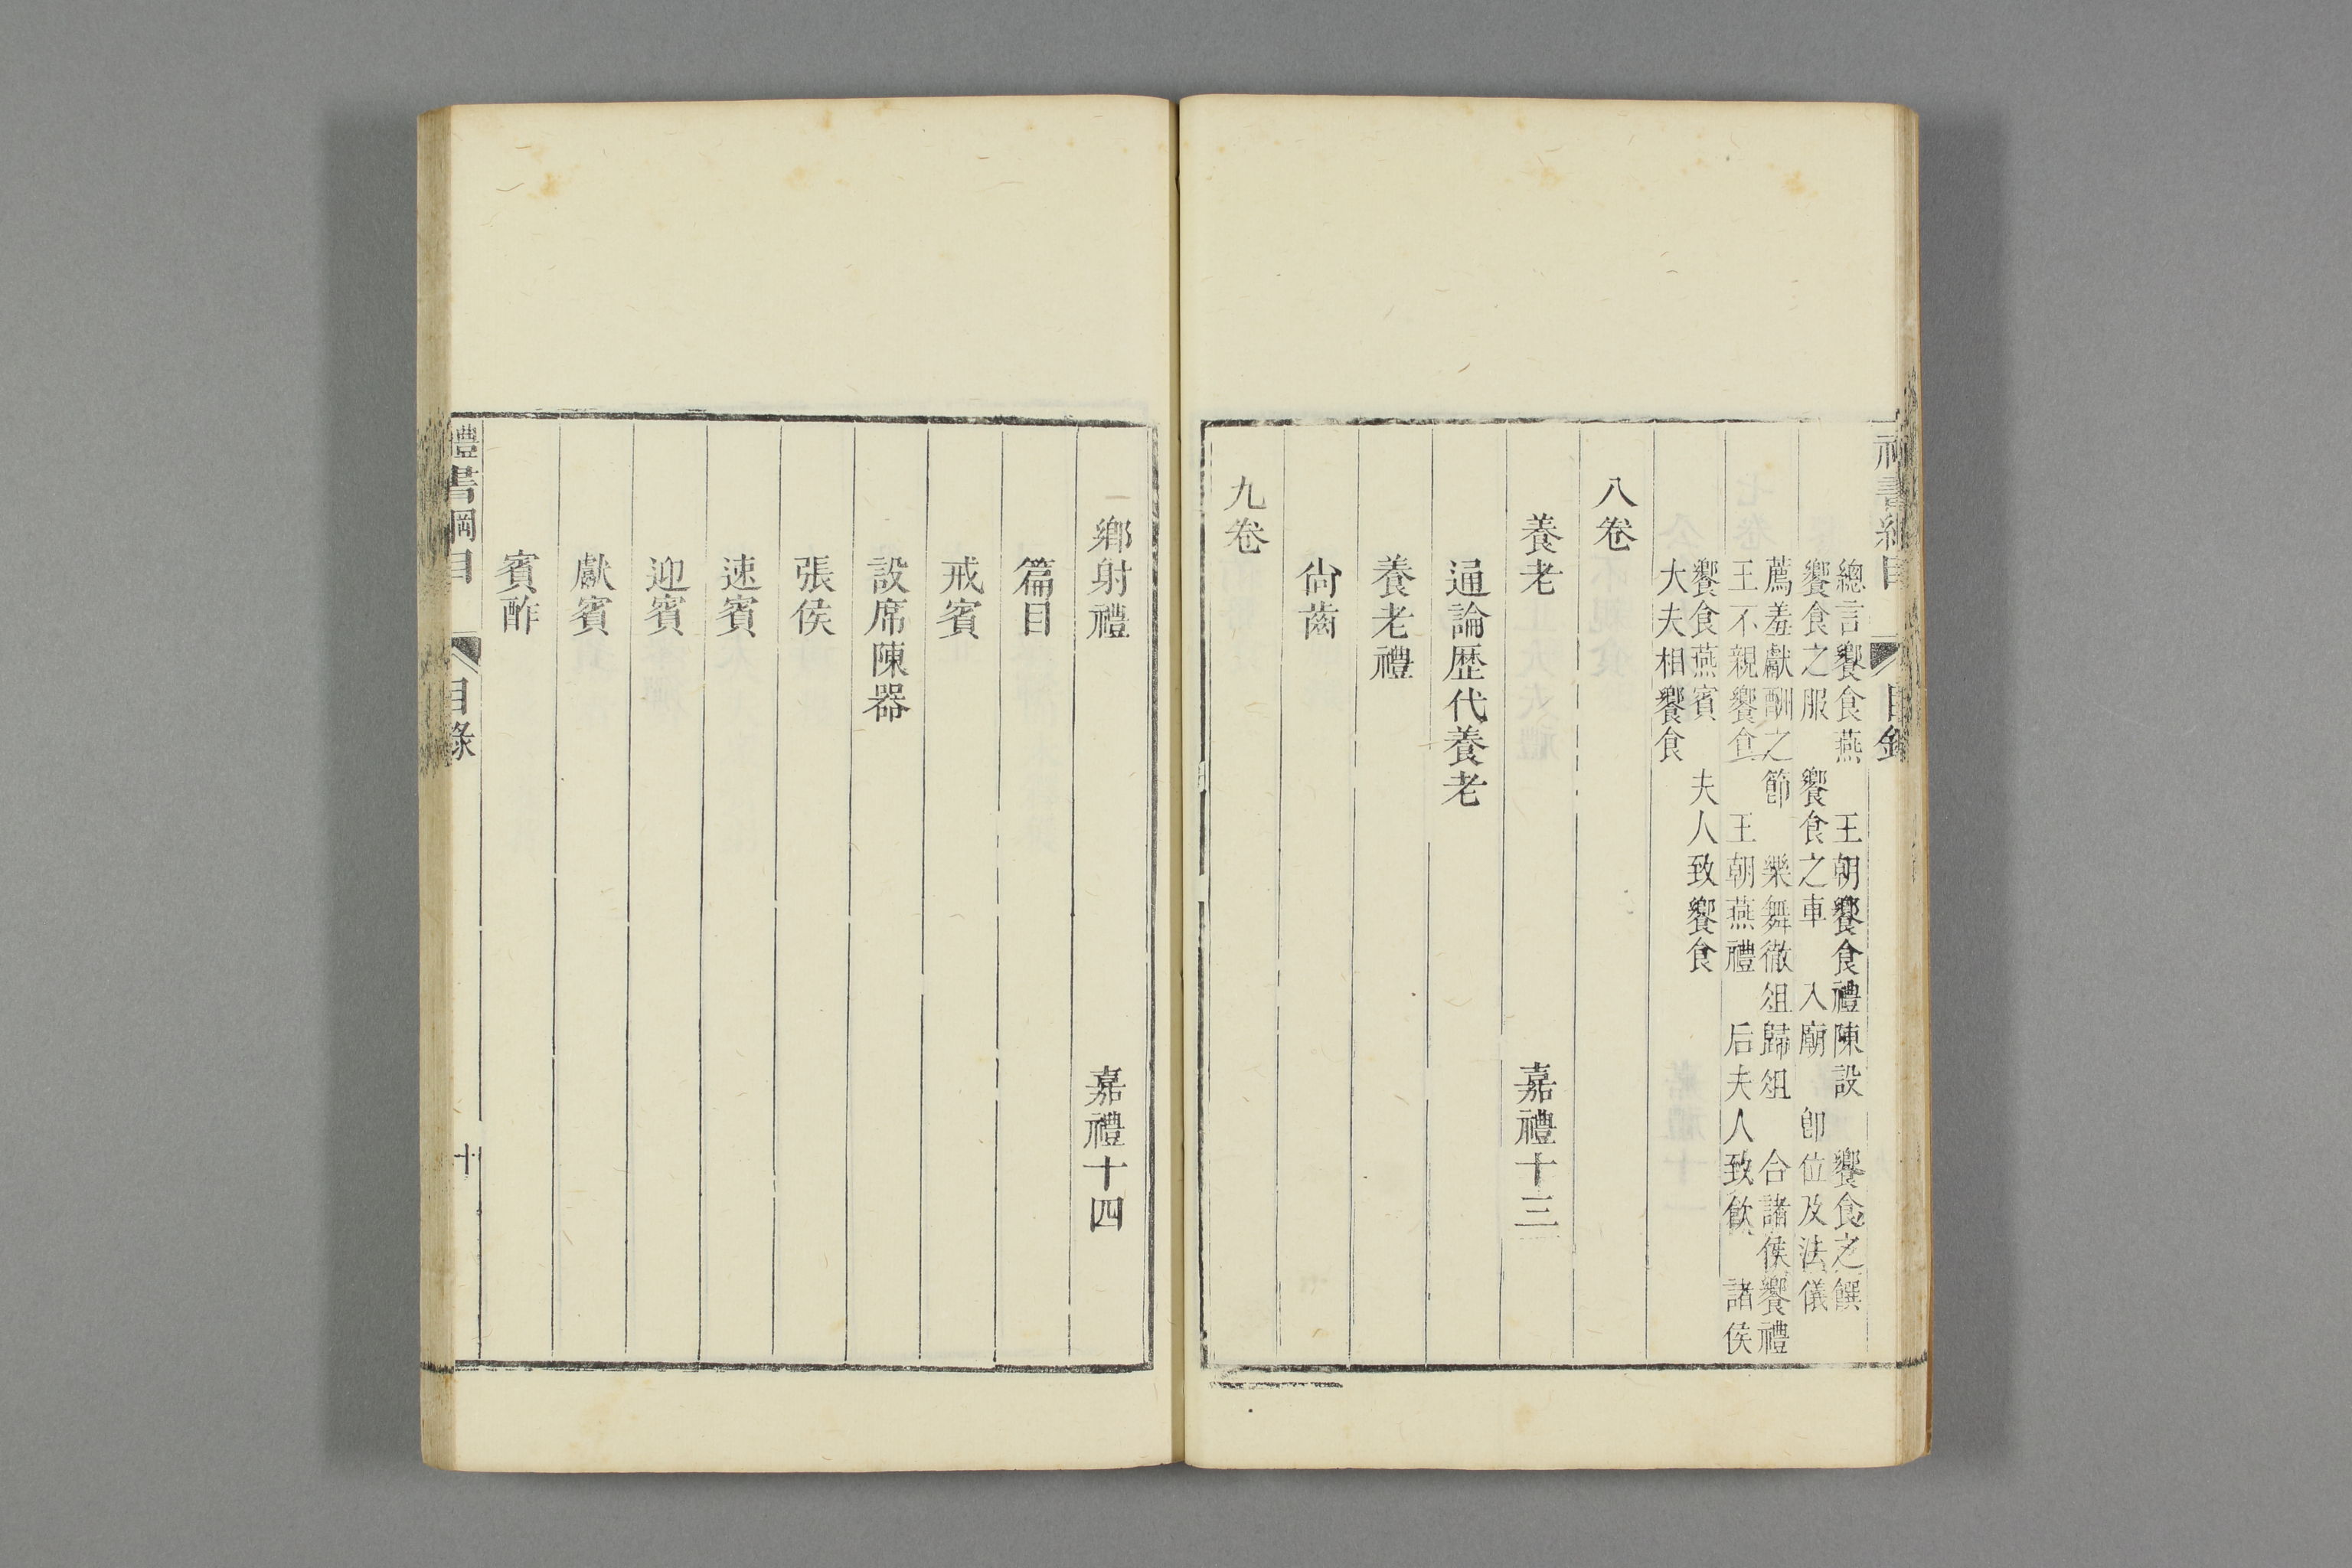 總言饗食燕 王朝饗食禮陳設 饗食之饌
饗食之服 饗食之車 入廟 卽位及法儀
薦羞獻酬之節 樂舞徹俎歸俎 合諸侯饗禮
王不親饗食 王朝燕禮 后夫人致飲 諸侯
饗食燕賓 夫人致饗食
大夫相饗食
八卷
養老 嘉禮十三
通論歷代養老
養老禮
尙齒
九卷
鄉射禮 嘉禮十四
篇目
戒賓
設席陳器
張侯
速賓
迎賓
獻賓
賓酢
禮書綱目 目錄 十